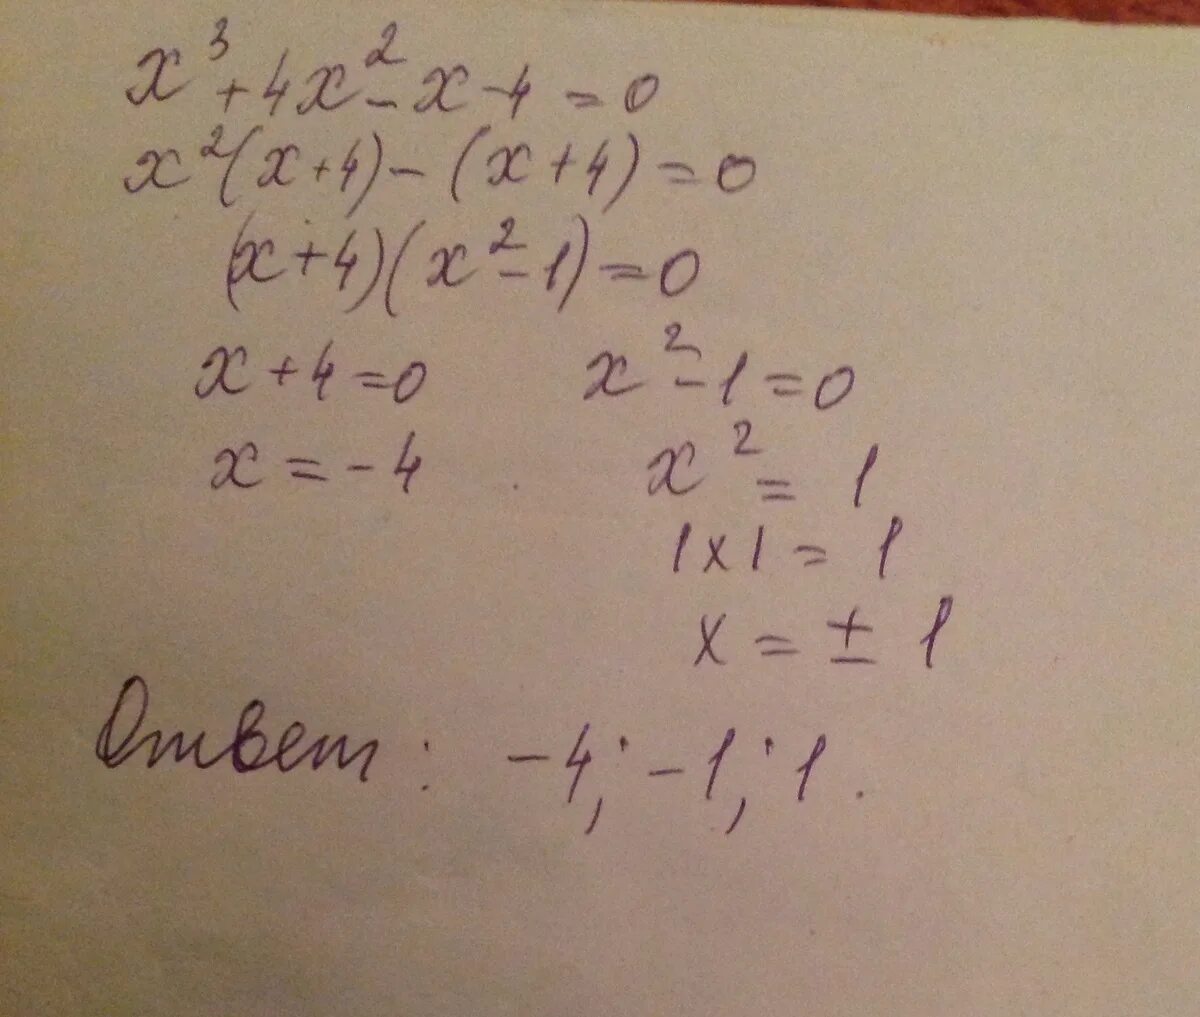 x³ + 4x² - x - 4 = 0
x²(x+4) - (x+4) = 0
(x+4)(x²-1) = 0
x+4=0 x²-1=0
x = -4 x² = 1
1x1 = 1
x = ± 1
Ответ: -4; -1; 1.